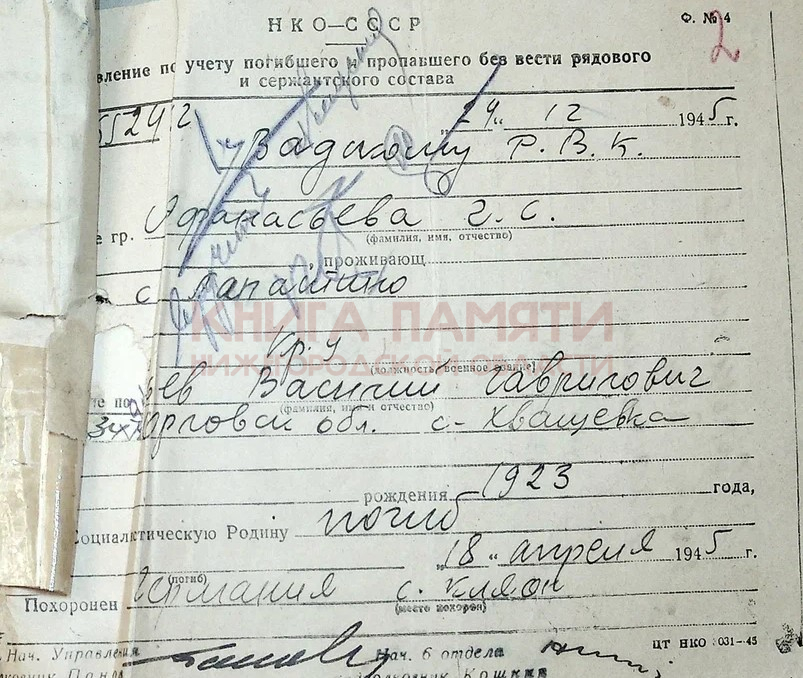 НКО—СССР
Ф. № 4
2
вление по учету погибшего и пропавшего без вести рядового
и сержантского состава
5524 2
„24“ 12 1945 г.
Вадскому Р.В.К.
е гр. Афанасьева Г. С.
(фамилия, имя, отчество)
, проживающ
с Лапатино
КНИГА ПАМЯТИ
НИЖЕГОРОДСКОЙ ОБЛАСТИ
кр-у
(должность, военное звание)
ьев Василий Гаврилович
(фамилия, имя и отчество)
обл. с-Хващевка
рождения 1923 года,
Социалистическую Родину погиб
(погиб)
„18“ апреля 1945 г.
Похоронен Германия с.
(место похорон)
ЦТ НКО 031—45
Нач. Управления
Нач. 6 отдела